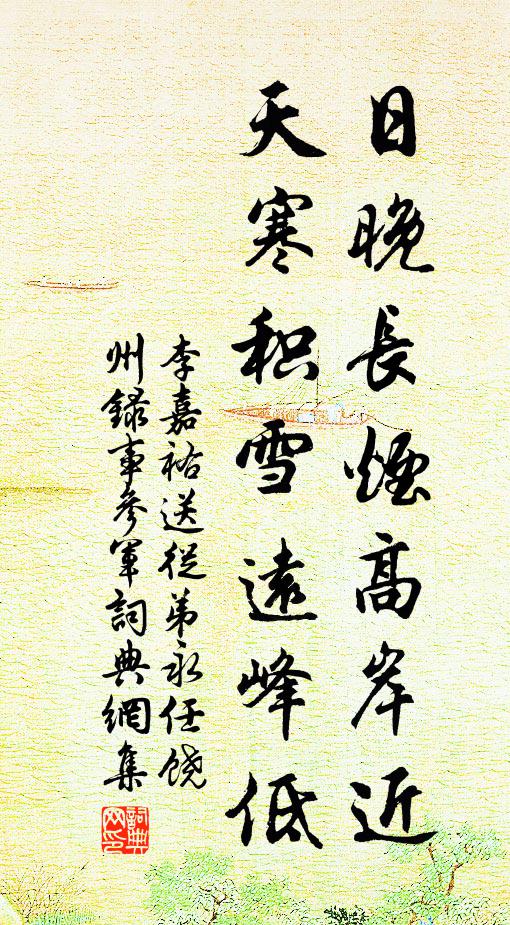 日晚長煙高岸近
天寒积雪遠峰低
李嘉祐送從弟永任饶
州録事參軍詞典網集
詞典网印